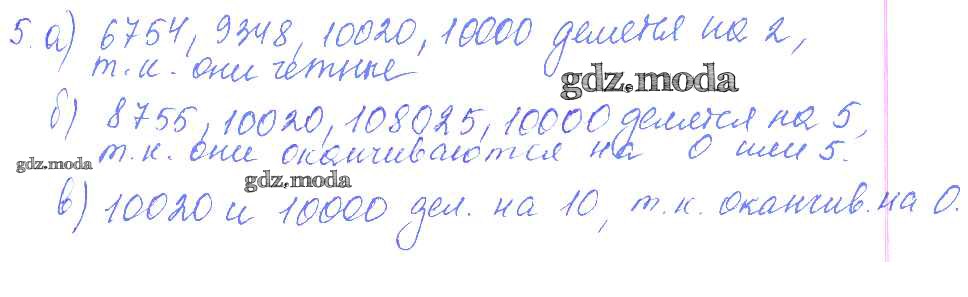 5. а) 6754, 9348, 10020, 10000 делятся на 2,
т.к. они четные
gdz.moda
б) 8755, 10020, 108025, 10000 делятся на 5,
gdz.moda
т.к. они оканчиваются на 0 или 5.
gdz.moda
в) 10020 и 10000 дел. на 10, т.к. оканчив. на 0.